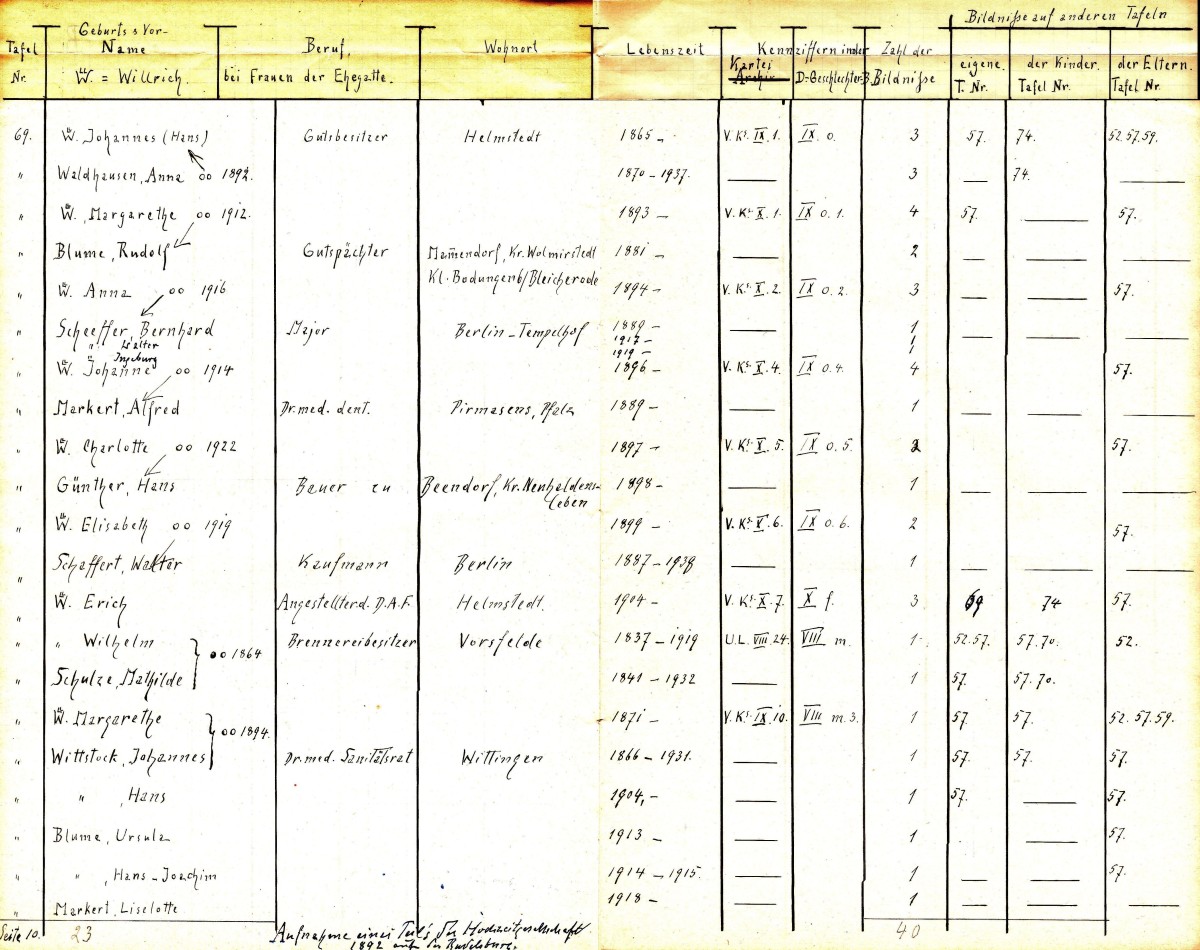 Bildniße auf anderen Tafeln
Tafel Nr. | Geburts & Vor-Name W̋. = Willrich. | Beruf, bei Frauen der Ehegatte. | Wohnort | Lebenszeit | Kennziffern in der Kartei Archiv D-Geschlechter-B. | Zahl der Bildniße | eigene. T. Nr. | der Kinder. Tafel Nr. | der Eltern. Tafel Nr.
69. W̋. Johannes (Hans) Gutsbesitzer Helmstedt 1865 – V. Kr. IX. 1. IX. o. 3 57. 74. 52.57.59.
" Waldhausen, Anna oo 1892. 1870 – 1937. — 3 — 74. —
" W̋., Margarethe oo 1912. 1893 – V. Kr. X. 1. IX o. 1. 4 57. — 57.
" Blume, Rudolf Gutspächter Mam̄endorf, Kr. Wolmirstedt 1881 – — 2 — — —
Kl. Bodungen b/Bleicherode
" W̋. Anna oo 1916 1894 – V. Kr. X. 2. IX o. 2. 3 — — 57.
" Scheffer, Bernhard Major Berlin – Tempelhof 1889 – — 1 — — —
" Walter 1917 – 1
" Ingeburg 1919 – 1
" W̋. Johanne oo 1914 1896 – V. Kr. X. 4. IX o. 4. 4 57.
" Markert, Alfred Dr. med. dent. Pirmasens, Pfalz 1889 – — 1 — — —
" W̋. Charlotte oo 1922 1897 – V. Kr. X. 5. IX o. 5. 2 57.
" Günther, Hans Bauer zu Beendorf, Kr. Neuhaldens- 1898 – — 1 — — —
leben
" W̋. Elisabeth oo 1919 1899 – V. Kr. X. 6. IX o. 6. 2 57.
" Schaffert, Walter Kaufmann Berlin 1887 – 1938 — 1 — — —
" W̋. Erich Angestellter d. D.A.F. Helmstedt. 1904 – V. Kr. X. 7. X f. 3 69 74 57.
" " Wilhelm oo 1864 Brennereibesitzer Vorsfelde 1837 – 1919 U.L. VIII. 24. VIII m. 1 52.57. 57.70. 52.
" Schulze, Mathilde 1841 – 1932 — 1 57. 57.70.
" W̋. Margarethe oo 1894. 1871 – V. Kr. IX. 10. VIII m. 3. 1 57. 57. 52.57.59.
" Wittstock, Johannes Dr. med. Sanitätsrat Wittingen 1866 – 1931. — 1 57. 57. 57.
" " , Hans 1904, – — 1 57. — 57.
" Blume, Ursula 1913 – — 1 57.
" " , Hans – Joachim 1914 – 1915. — 1 — — 57.
" Markert, Liselotte 1918 – — 1 — — —
Seite 10. 23 Aufnahme eines Teils der Hochzeitgesellschaft 40
1892 auf der